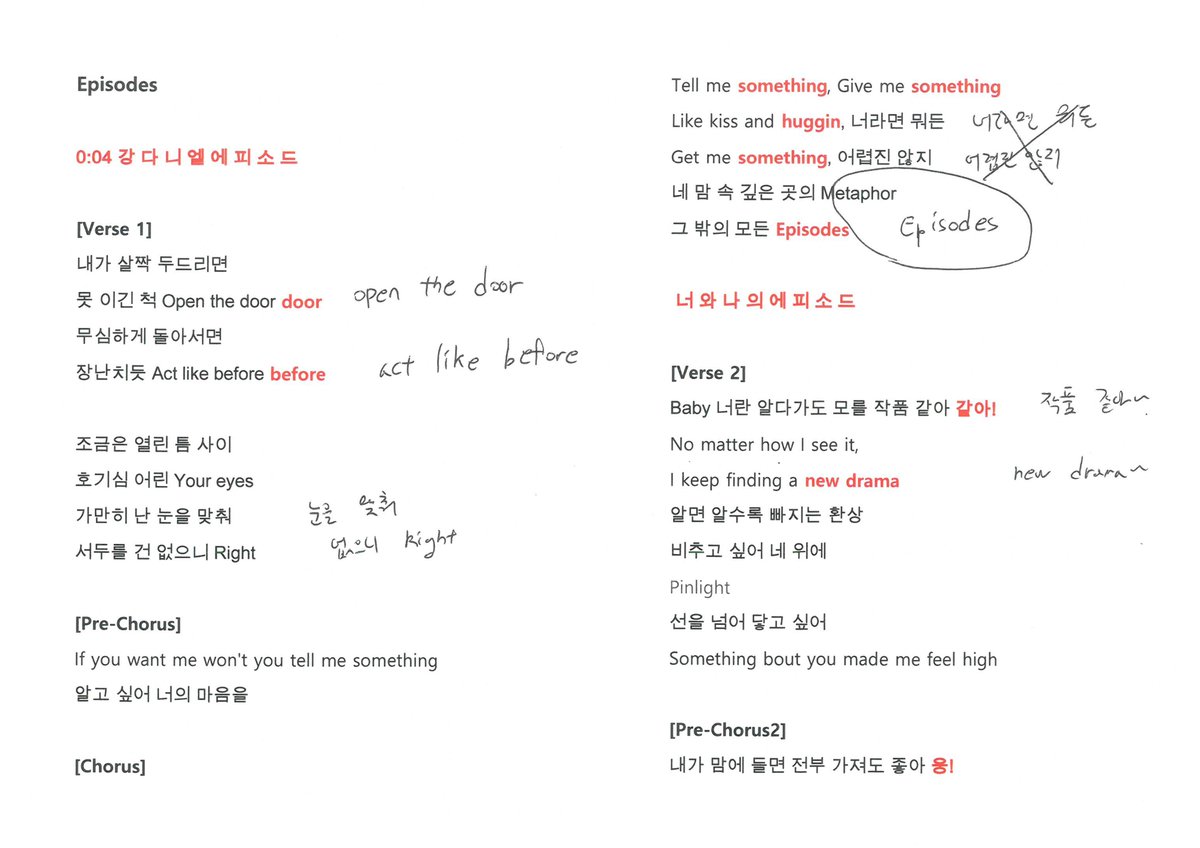 Episodes
0:04 강 다 니 엘 에 피 소 드
[Verse 1]
내가 살짝 두드리면
못 이긴 척 Open the door door open the door
무심하게 돌아서면
장난치듯 Act like before before act like before
조금은 열린 틈 사이
호기심 어린 Your eyes
가만히 난 눈을 맞춰 눈을 맞춰
서두를 건 없으니 Right 없으니 Right
[Pre-Chorus]
If you want me won't you tell me something
알고 싶어 너의 마음을
[Chorus]
Tell me something, Give me something
Like kiss and huggin, 너라면 뭐든 너라면 뭐든
Get me something, 어렵진 않지 어렵진 않지
네 맘 속 깊은 곳의 Metaphor
그 밖의 모든 Episodes Episodes
너 와 나 의 에 피 소 드
[Verse 2]
Baby 너란 알다가도 모를 작품 같아 같아! 작품 같아~
No matter how I see it,
I keep finding a new drama new drama~
알면 알수록 빠지는 환상
비추고 싶어 네 위에
Pinlight
선을 넘어 닿고 싶어
Something bout you made me feel high
[Pre-Chorus2]
내가 맘에 들면 전부 가져도 좋아 웅!